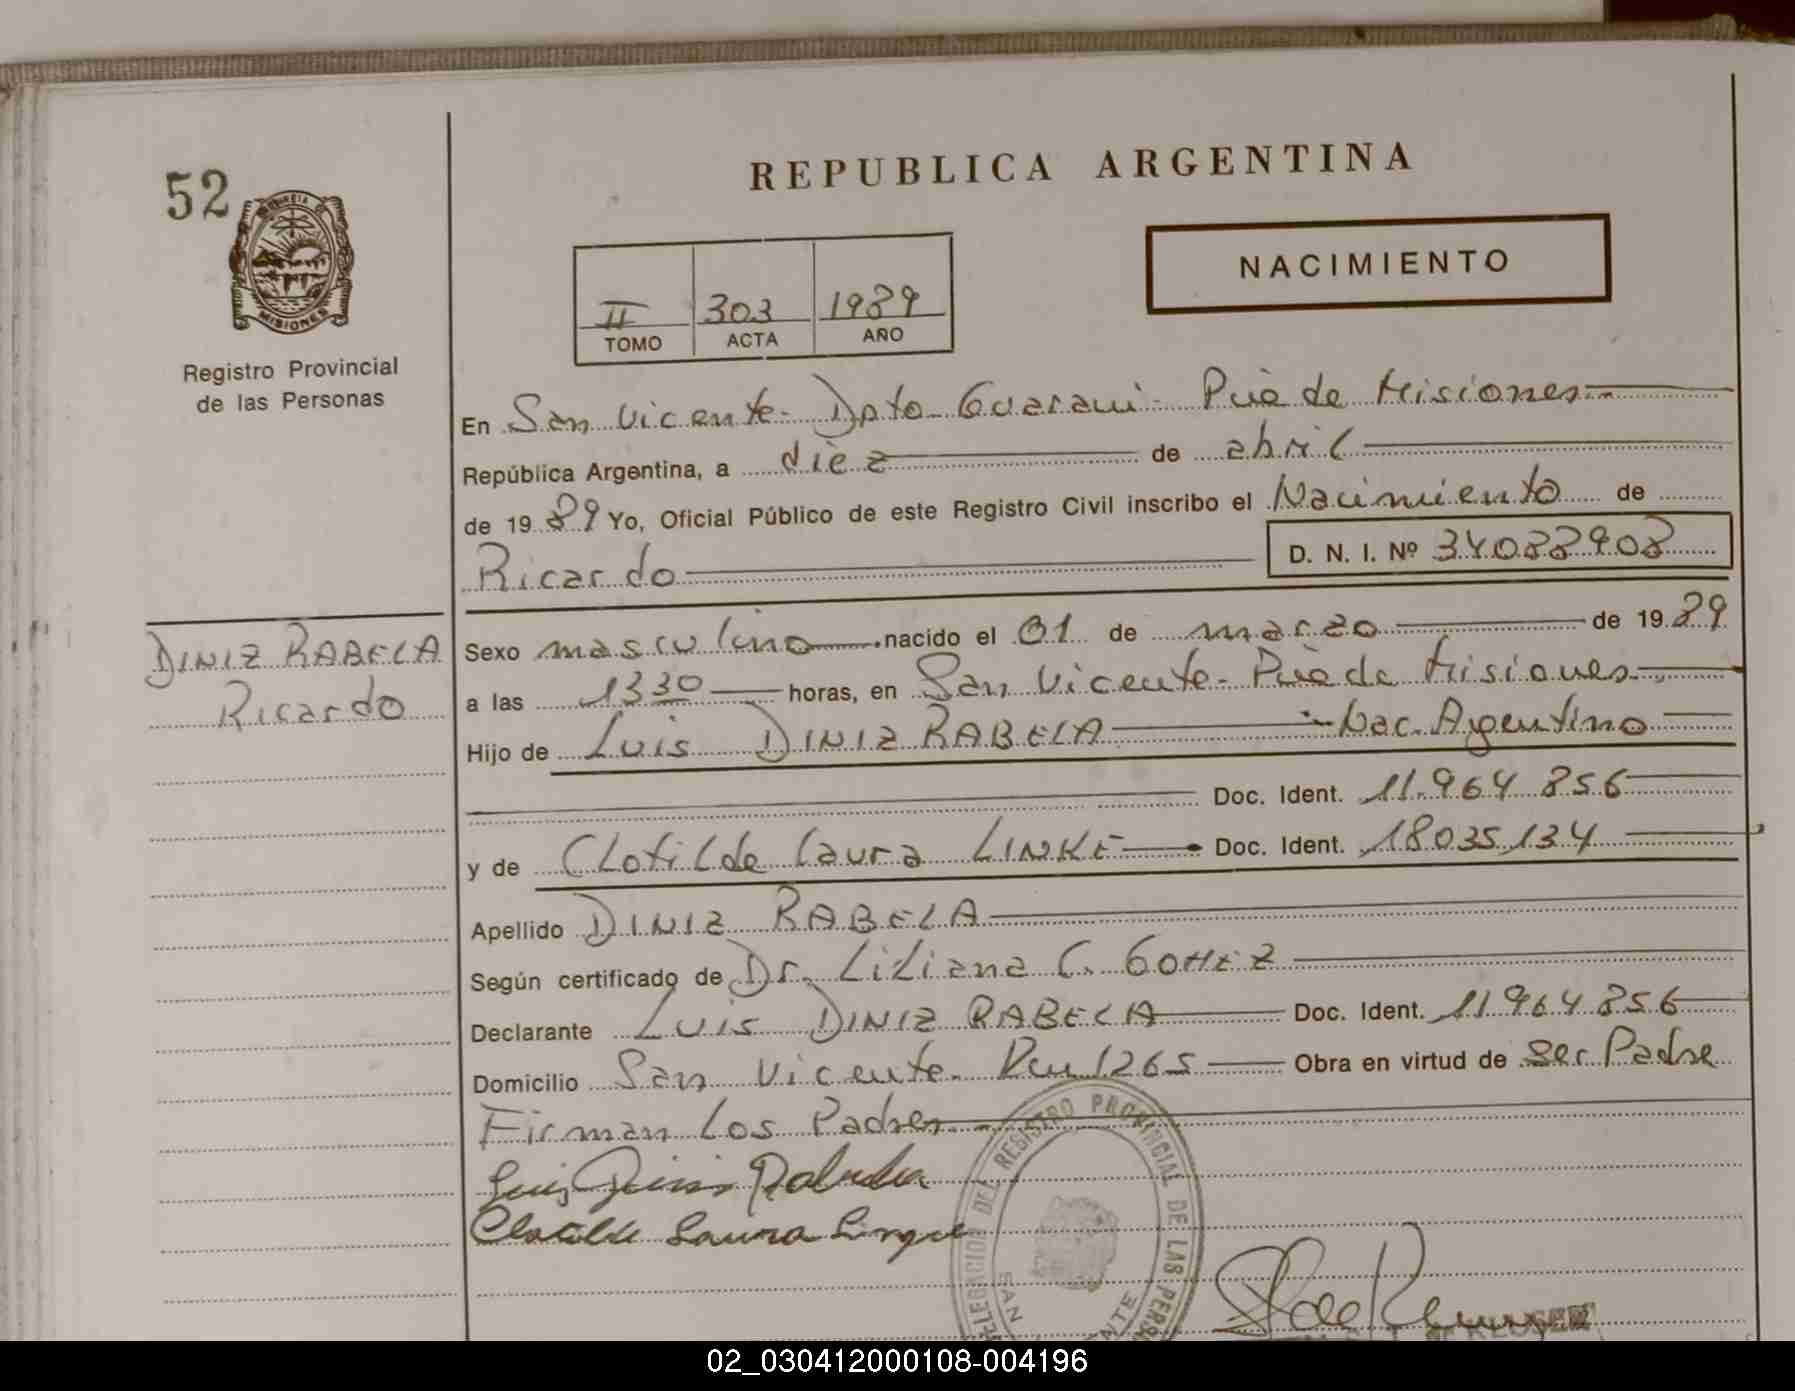 52
PROVINCIA DE
MISIONES
Registro Provincial
de las Personas
DINIZ RABELA
Ricardo
REPUBLICA ARGENTINA
NACIMIENTO
II 303 1989
TOMO ACTA AÑO
En San Vicente - Dpto Guarani - Pcia de Misiones
República Argentina, a diez de abril
de 1989 Yo, Oficial Público de este Registro Civil inscribo el Nacimiento de
Ricardo D. N. I. Nº 34088908
Sexo masculino nacido el 01 de marzo de 1989
a las 1330 horas, en San Vicente - Pcia de Misiones
Hijo de Luis DINIZ RABELA - Nac. Argentino
Doc. Ident. 11.964.856
y de Clotilde Laura LINKE Doc. Ident. 18.035.134
Apellido DINIZ RABELA
Según certificado de Dr. Liliana C. GOMEZ
Declarante Luis DINIZ RABELA Doc. Ident. 11.964.856
Domicilio San Vicente - Km 1265 Obra en virtud de Ser Padre
Firman Los Padres
Luis Diniz
Clotilde Laura Linque
DELEGACION DEL REGISTRO PROVINCIAL DE LAS PERS
SAN NTE
02_030412000108-004196